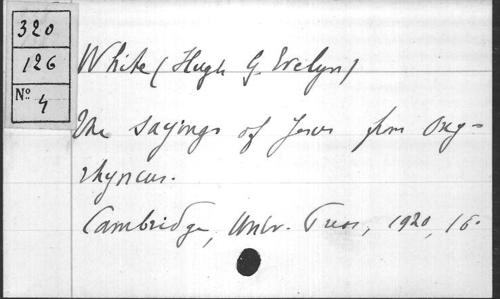 320
126
Nº 4
White (Hugh G. Evelyn)
The sayings of Jesus from Oxy-
rhyncus.
Cambridge, Univ. Press, 1920, 16º